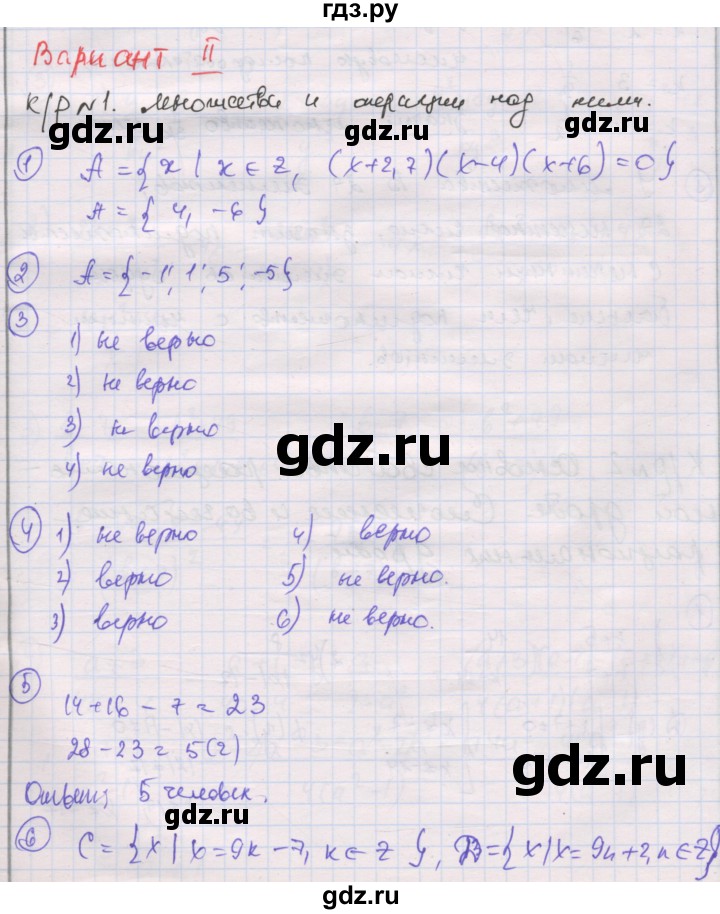 гдз.ру
Вариант II
К/Р №1. Множества и операции над ними.
1 A = { x | x ∈ Z, (x+2,7)(x-4)(x+6)=0 }
A = { 4, -6 }
2 A = { -1; 1; 5; -5 }
3
1) не верно
2) не верно
3) не верно
4) не верно
gdz.ru
gdz.ru
gdz.ru
4 1) не верно 4) верно
2) верно 5) не верно.
3) верно 6) не верно.
gdz.ru
gdz.ru
5
14+16-7=23
28-23=5(2)
Ответ; 5 человек.
gdz.ru
gdz.ru
6 C = { x | x=9k-7, k ∈ Z }, B={ x | x=9n+2, n ∈ Z }
gdz.ru
gdz.ru